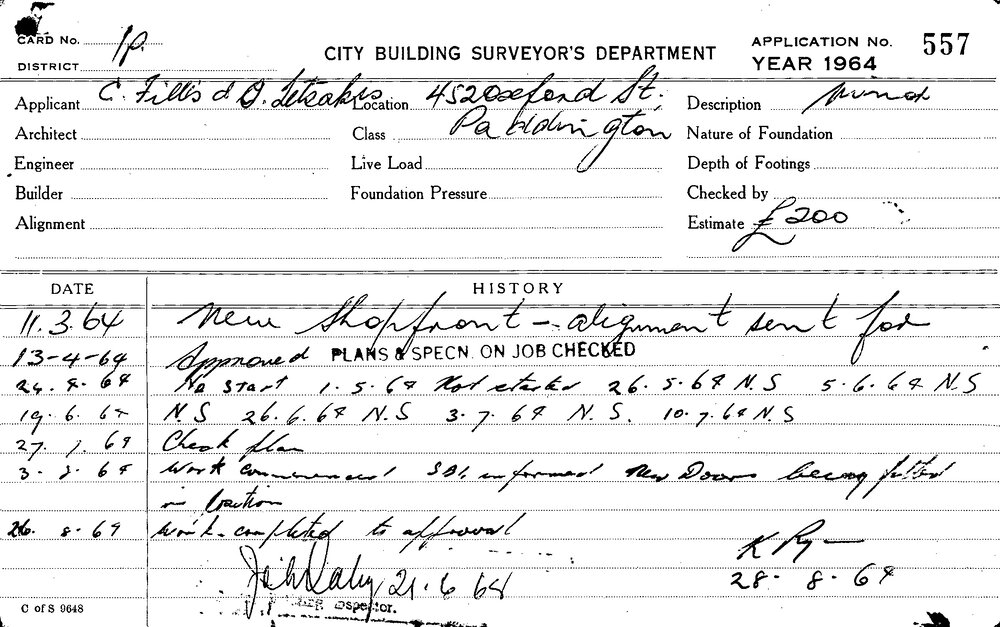 CARD No. 1p.
DISTRICT
CITY BUILDING SURVEYOR'S DEPARTMENT
APPLICATION No. 557
YEAR 1964
Applicant C. Fillis & D. Letsakis Location 452 Oxford St,
Description
Architect
Class Paddington
Nature of Foundation
Engineer
Live Load
Depth of Footings
Builder
Foundation Pressure
Checked by
Alignment
Estimate £200
DATE HISTORY
11.3.64 New Shopfront - alignment sent for
13-4-64 Approved PLANS & SPECN. ON JOB CHECKED
24.4.64 No Start 1.5.64 Not started 26.5.64 N.S 5.6.64 N.S
19.6.64 N.S 26.6.64 N.S 3.7.64 N.S. 10.7.64 N.S
27.7.64 Check plan
3.8.64 Work commenced informed New Doors being fitted
in location
26.8.64 Work completed to approval
K Ryan
21.6.68
28.8.64
Inspector.
C of S 9648